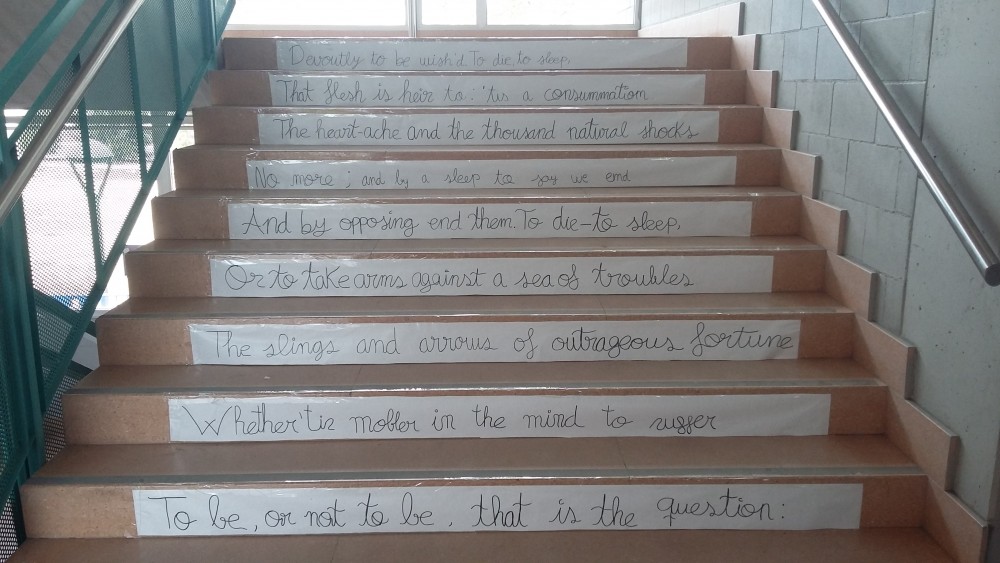 To be, or not to be, that is the question:
Whether'tis nobler in the mind to suffer
The slings and arrows of outrageous fortune
Or to take arms against a sea of troubles
And by opposing end them. To die-to sleep,
No more; and by a sleep to say we end
The heart-ache and the thousand natural shocks
That flesh is heir to: 'tis a consummation
Devoutly to be wish'd. To die, to sleep